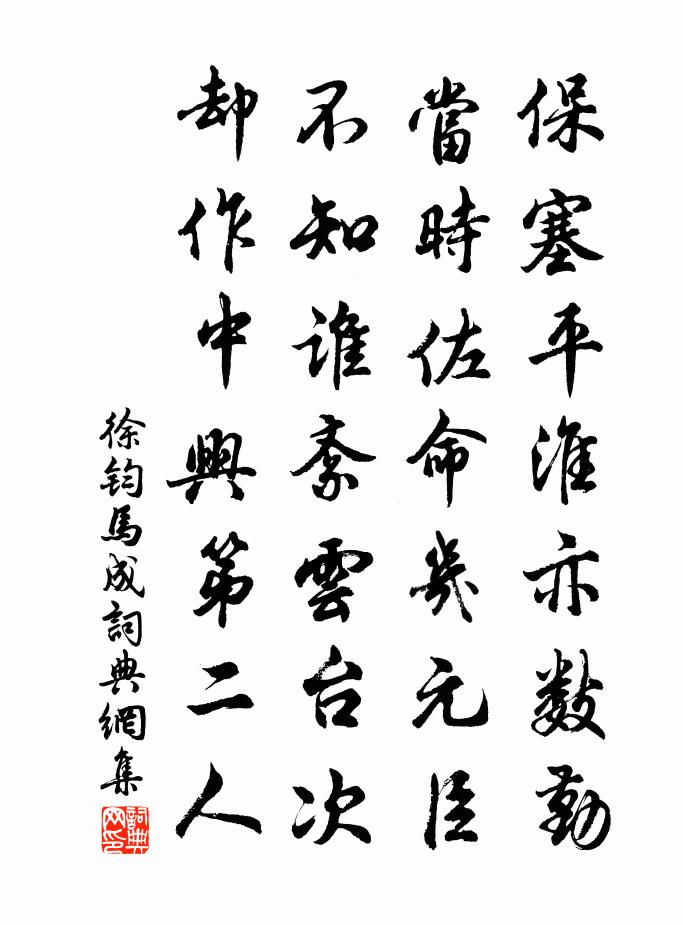 保塞平淮亦數勤
當時佐命幾元臣
不知誰紊雲台次
却作中興第二人
徐鈞馬成詞典網集
詞典网印